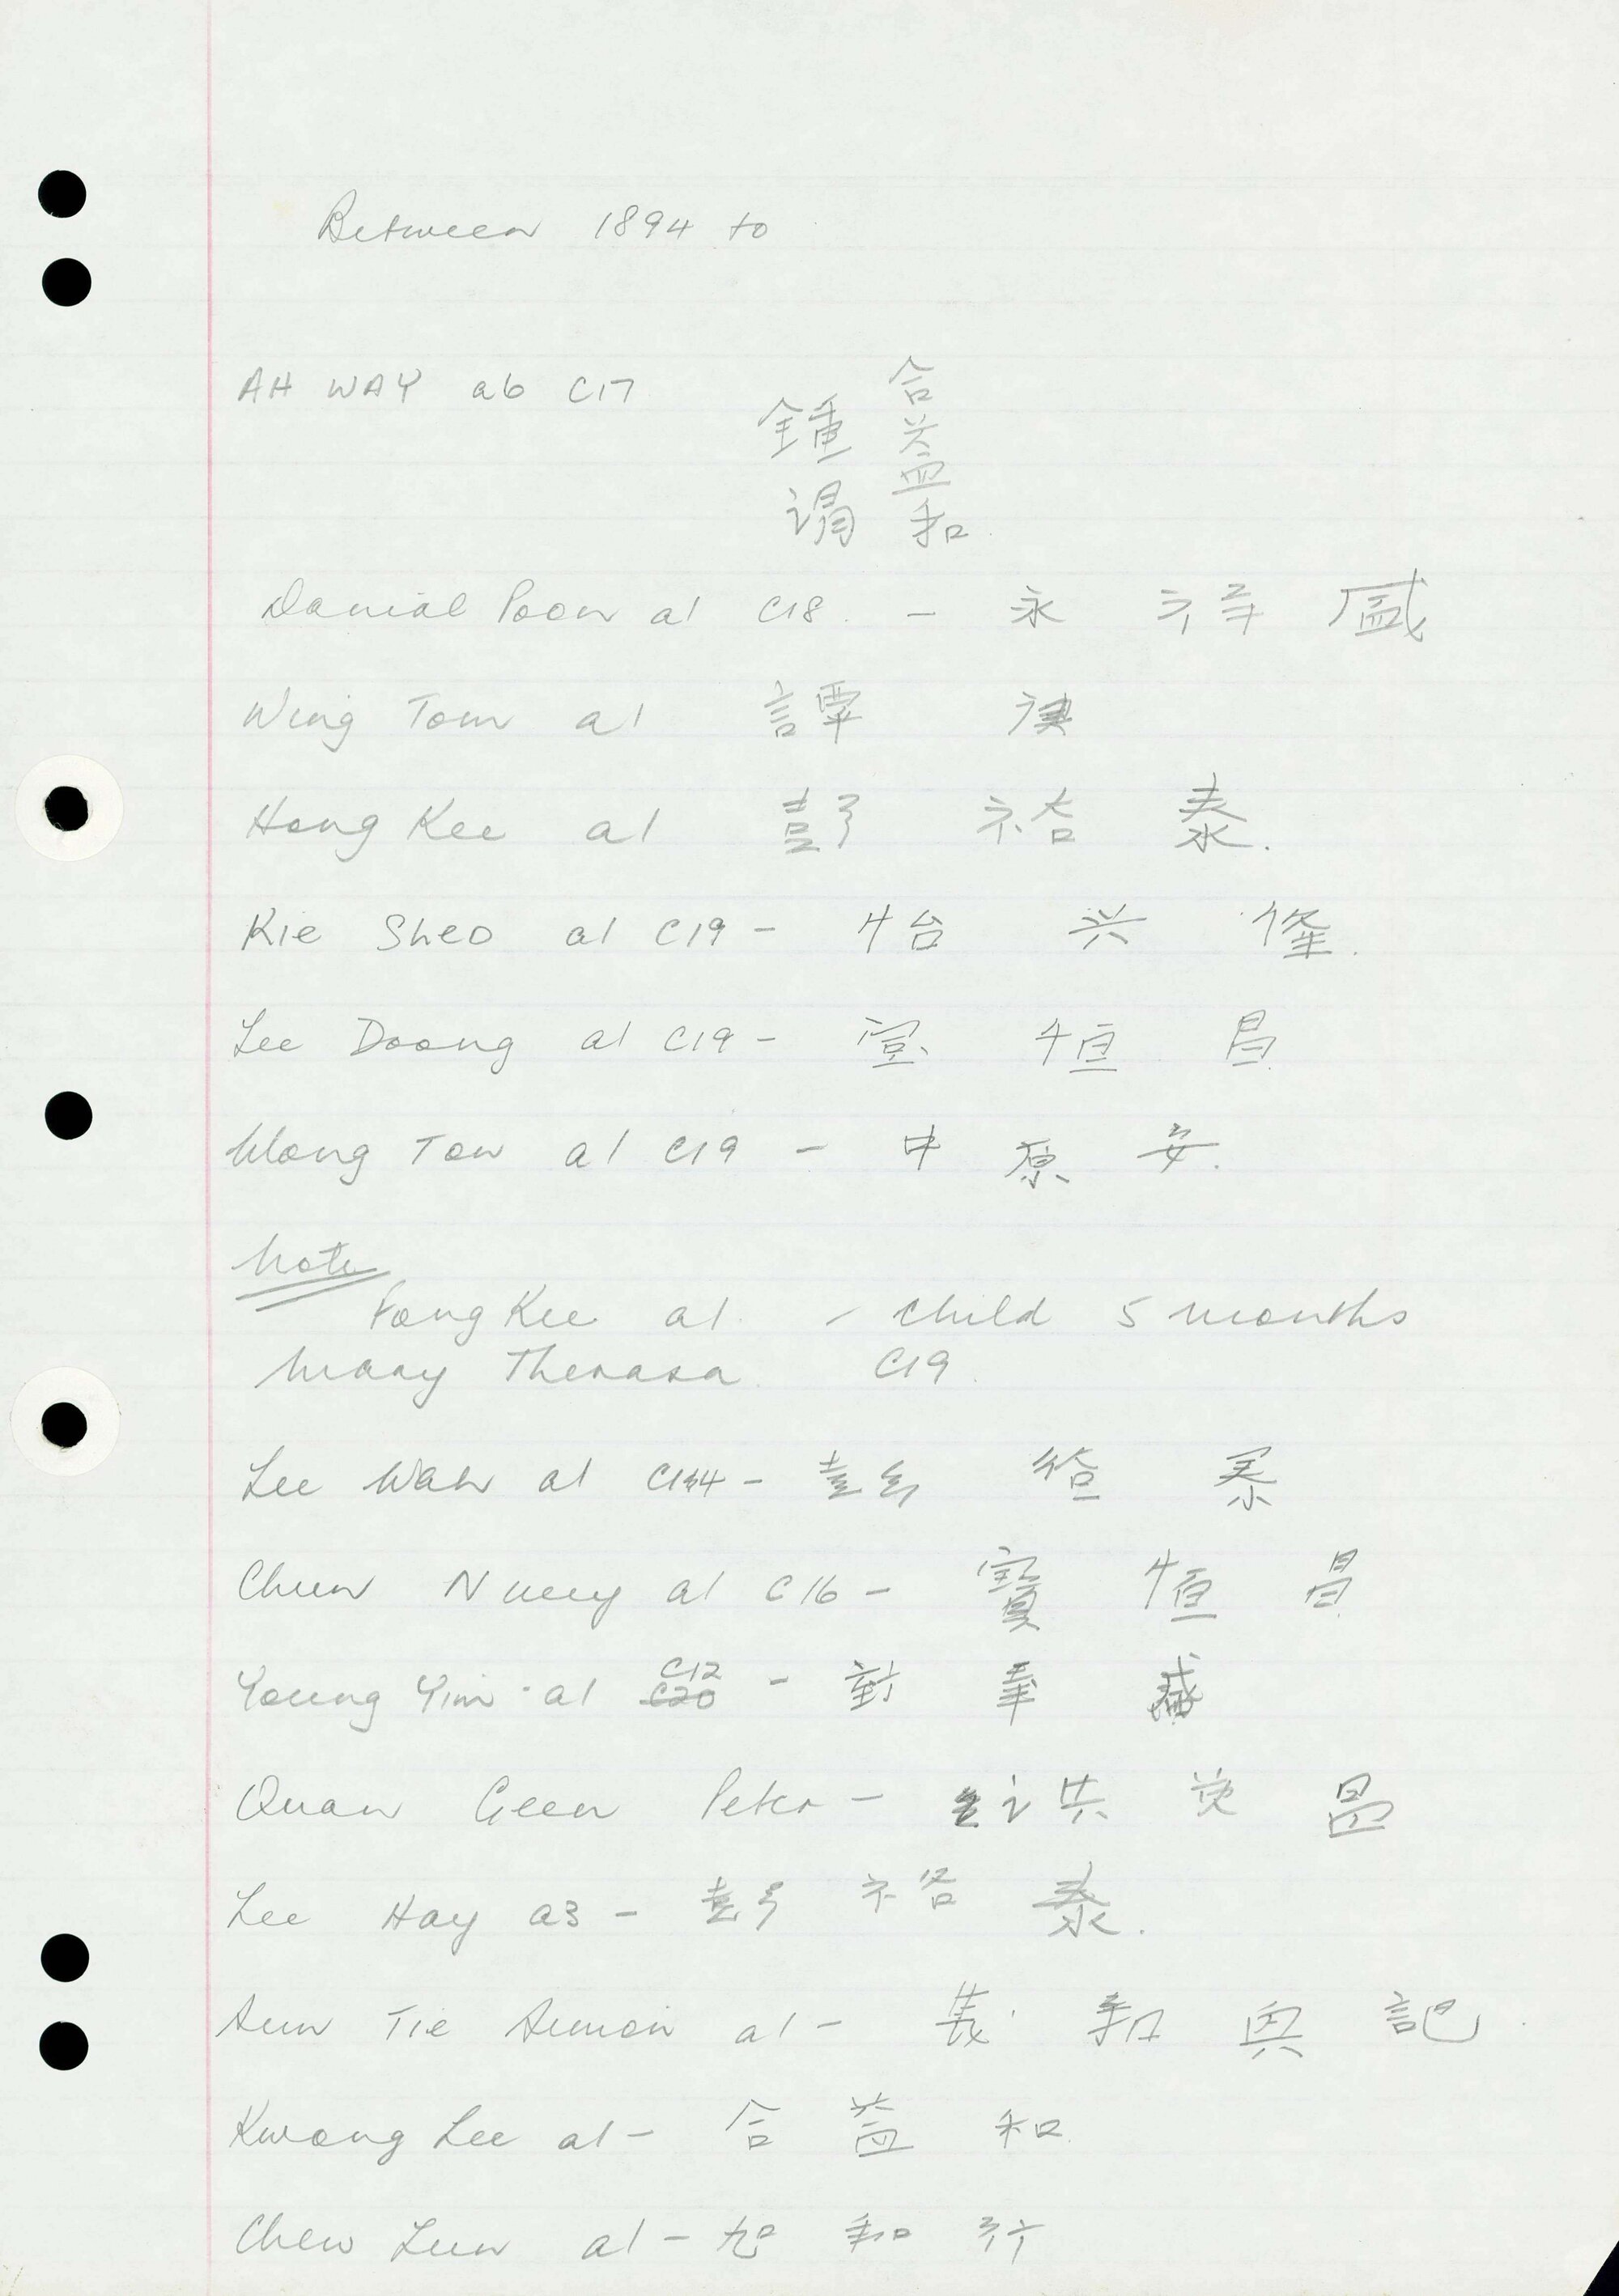 Between 1894 to
AH WAY a6 C17
合益和
鍾謂
Danial Poon a1 C18 - 永 祥 盛
Wing Tom a1 譚
Hong Kee a1 彭 裕 泰.
Kie Sheo a1 C19 - 怡 兴 隆.
Lee Doong a1 C19 - 宝 恒 昌
Wong Tow a1 C19 - 中 原 安.
Note
Fong Kee a1 - child 5 months
Mary Therasa C19
Lee Wah a1 - 彭 泰
Chun a1 C16 - 寶 恒 昌
Young Yim a1 C12 - 對 盛
Quan Geen Peter - 昌
Lee Hay a3 - 彭 裕 泰.
Sun Tie Simon a1 - 義 和 興 記
Kwong Lee a1 - 合 益 和
Chew Lun a1 - 旭 和 行